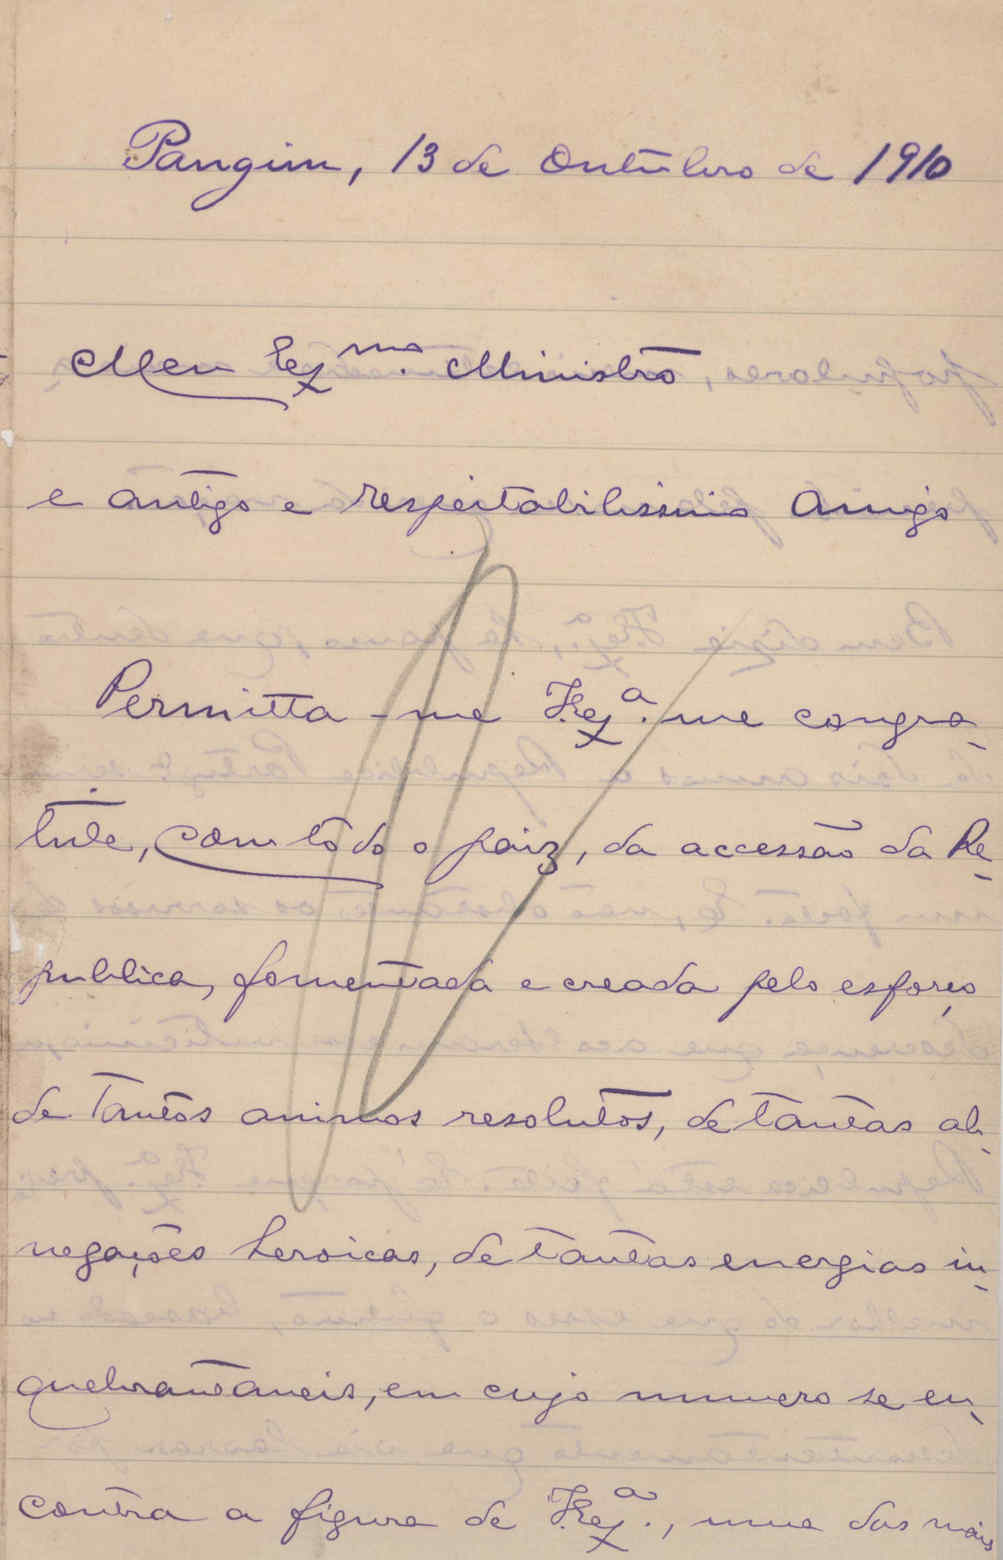 Pangim, 13 de Outubro de 1910
Meu Ex.mo Ministro
e antigo e respeitabilissimo Amigo
Permitta-me V. Ex.a me congra-
tule, com todo o paiz, da accessão da Re-
publica, fomentada e creada pelo esforço
de tantos animos resolutos, de tantas ab-
negações heroicas, de tantas energias in-
quebrantaveis, em cujo numero se en-
contra a figura de V. Ex.a, uma das mais